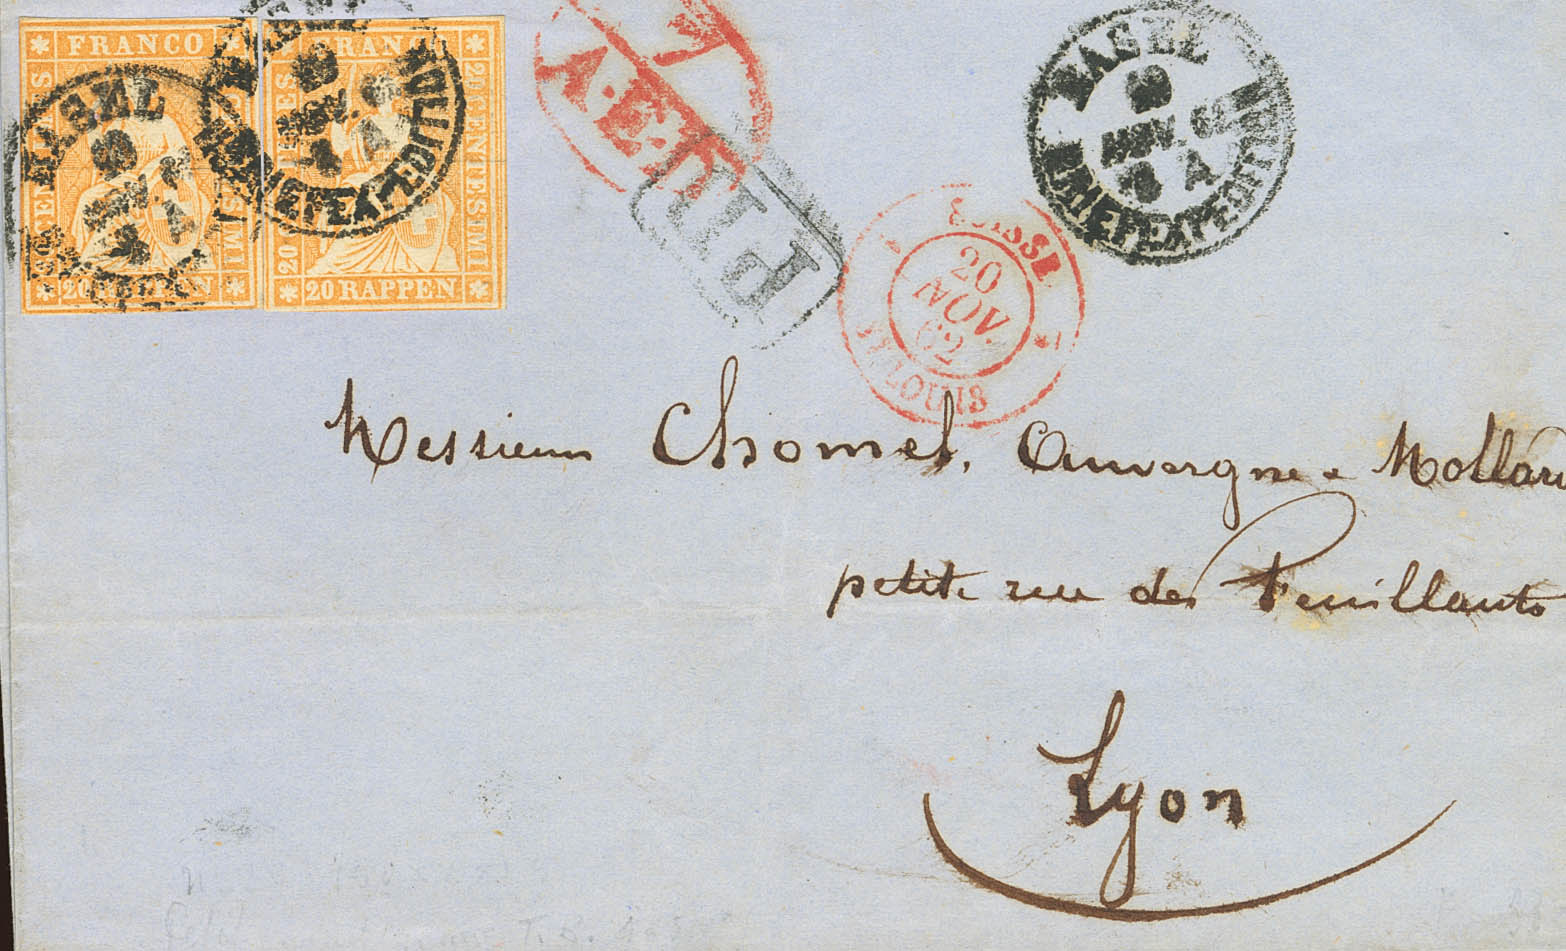 FRANCO
20 RAPPEN
FRANCO
20 CENTESIMI
20 RAPPEN
BASEL
BASEL
NOV.
A
BRIEFEXPEDITION
A.E.D.
P.P.
SUISSE
20
NOV.
62
ST LOUIS
Messieurs Chomel, Auvergne & Mollard
petite rue des Feuillants
Lyon